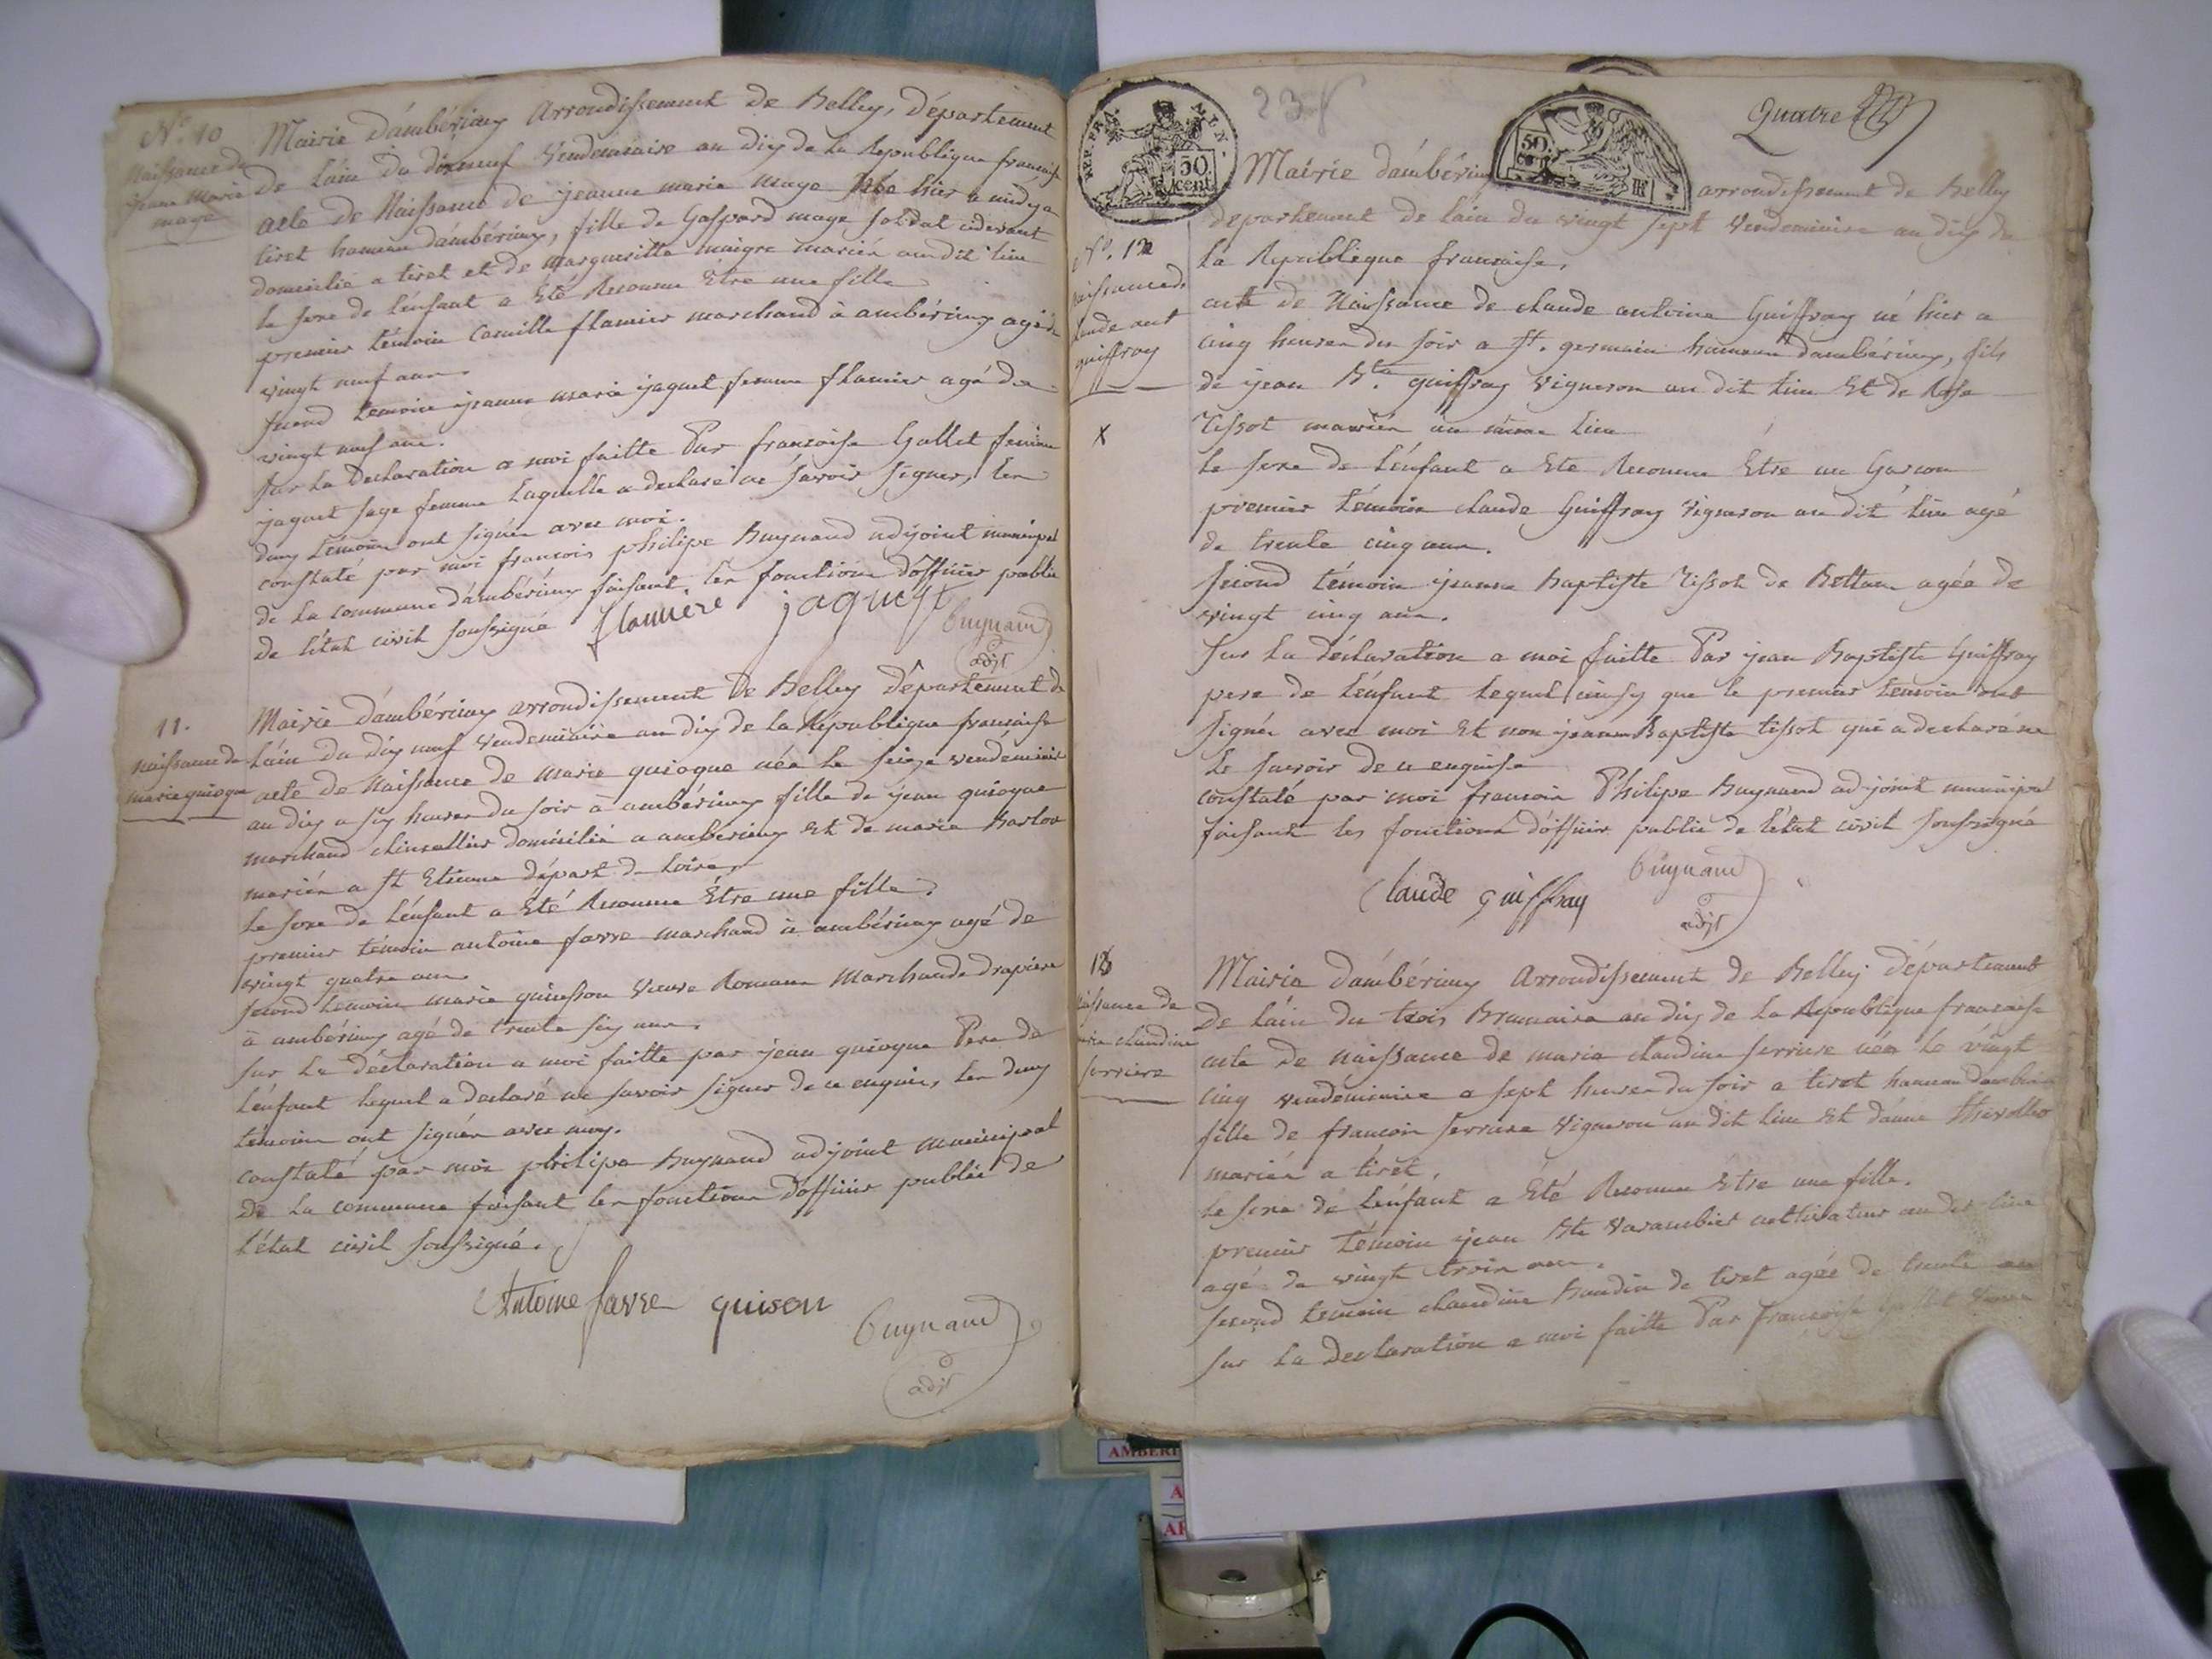 N.o 10
Naissance de
jeanne Marie
mage
Mairie d'ambérieux Arrondissement de Belley, département
de l'ain du dixneuf Vendémiaire an dix de la République française
acte de Naissance de jeanne marie mage Née hier a midy a
tiret hameau d'ambérieux, fille de Gaspard mage soldat cidevant
domicilié a tiret et de Margueritte maigre mariés au dit lieu
le sexe de l'enfant a Eté Reconnu Etre une fille
premier témoin Camille flamier marchand à ambérieux agé de
vingt neuf ans.
second temoin jeanne marie jaquet femme flamier agé de
vingt neuf ans.
sur la Declaration a moi faitte Par françoise Gallet femme
jaquet sage femme laquelle a declaré ne savoir signer, les
deux témoins ont signés avec moi.
constaté par moi francois philipe Buynand adjoint municipal
de la commune d'ambérieux faisant les fonctions d'officier public
de l'état civil soussigné
flamiere jaquest Buynand
adjt
11.
naissance de
marie quioque
Mairie d'ambérieux arrondissement de Belley département de
l'ain du dix neuf vendemiaire an dix de la République francaise
acte de Naissance de marie quioque née le seize vendémiaire
an dix a six heures du soir à ambérieux fille de jean quioque
marchand domicilié a ambérieux et de marie Barlov
mariés a St Etienne départ de loire,
le sexe de l'enfant a Eté Reconnu Etre une fille.
premier témoin antoine favre marchand à ambérieux agé de
vingt quatre ans
second temoin marie quinson veuve Romans Marchande drapiere
à ambérieux agé de trente six ans.
sur la déclaration a moi faitte par jean quioque Pere de
l'enfant lequel a declaré ne savoir signer de ce enquis, les deux
témoins ont signés avec moy.
constaté par moi philipe Buynand adjoint municipal
de la commune faisant les fonctions d'officier public de
l'état civil soussigné.
Antoine favre quison
Buynand
adjt
REP. FRA. 50 cent.
23
50.
Quatre
Mairie d'ambérieux arrondissement de Belley
departement de l'ain du vingt sept Vendemiaire an dix de
la République francaise,
N.o 12
naissance de
claude ant
guiffray
X
acte de Naissance de claude antoine Guiffray né hier a
cinq heures du soir a St. germain hameau d'ambérieux, fils
de jean Bte guiffray vigneron au dit lieu Et de Rose
Tissot mariés au même lieu
le sexe de l'énfant a Eté Reconnu Etre un Garcon
premier témoin claude Guiffray vigneron au dit lieu agé
de trente cinq ans.
second témoin jeanne baptiste Tissot de Bettan agée de
vingt cinq ans.
sur la déclaration a moi faitte Par jean Baptiste Guiffray
pere de l'énfant lequel ainsy que le premier temoin ont
signés avec moi Et non jeanne Baptiste tissot qui a declaré ne
le savoir de ce enquise
constaté par moi francois Philipe Buynand adjoint municipal
faisant les fonctions d'officier public de l'état civil soussigné
Claude guiffray Buynand
adjt
13
naissance de
marie claudine
serriere
Mairie d'ambérieux Arrondissement de Belley département
De l'ain du trois Brumaire an dix de la République francaise
acte de naissance de marie claudine serriere née le vingt
cinq vendemiaire a sept heures du soir a tiret hameau d'ambérieux
fille de francois serriere Vigneron au dit lieu Et d'anne
mariés a tiret.
le sexe de l'énfant a Eté Reconnu Etre une fille.
premier témoin jean Bte Varambier cultivateur au dit lieu
agé de vingt trois ans.
second temoin claudine Baudin de tiret agée de trente ans
sur la declaration a moi faitte Par francoise